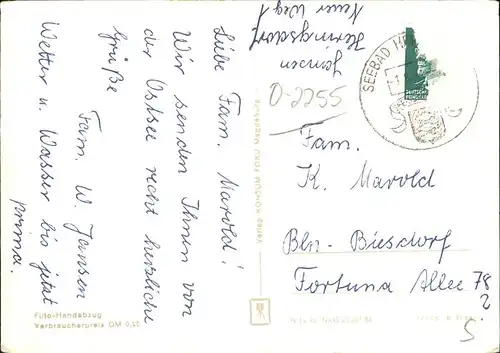 Liebe Fam. Marold!
Wir senden Ihnen von
der Ostsee recht herzliche
Grüße
Fam. W. Jensen
Wetter u. Wasser bis jetzt
prima.
Foto-Handabzug
Verbraucherpreis DM
Verlag KONSUM FOKO Magdeburg
Jensen
Heringsdorf
Neuer Weg 1
D-2255
SEEBAD
Fam.
K. Marold
Bln-Biesdorf
Fortuna Allee 78
2.
5